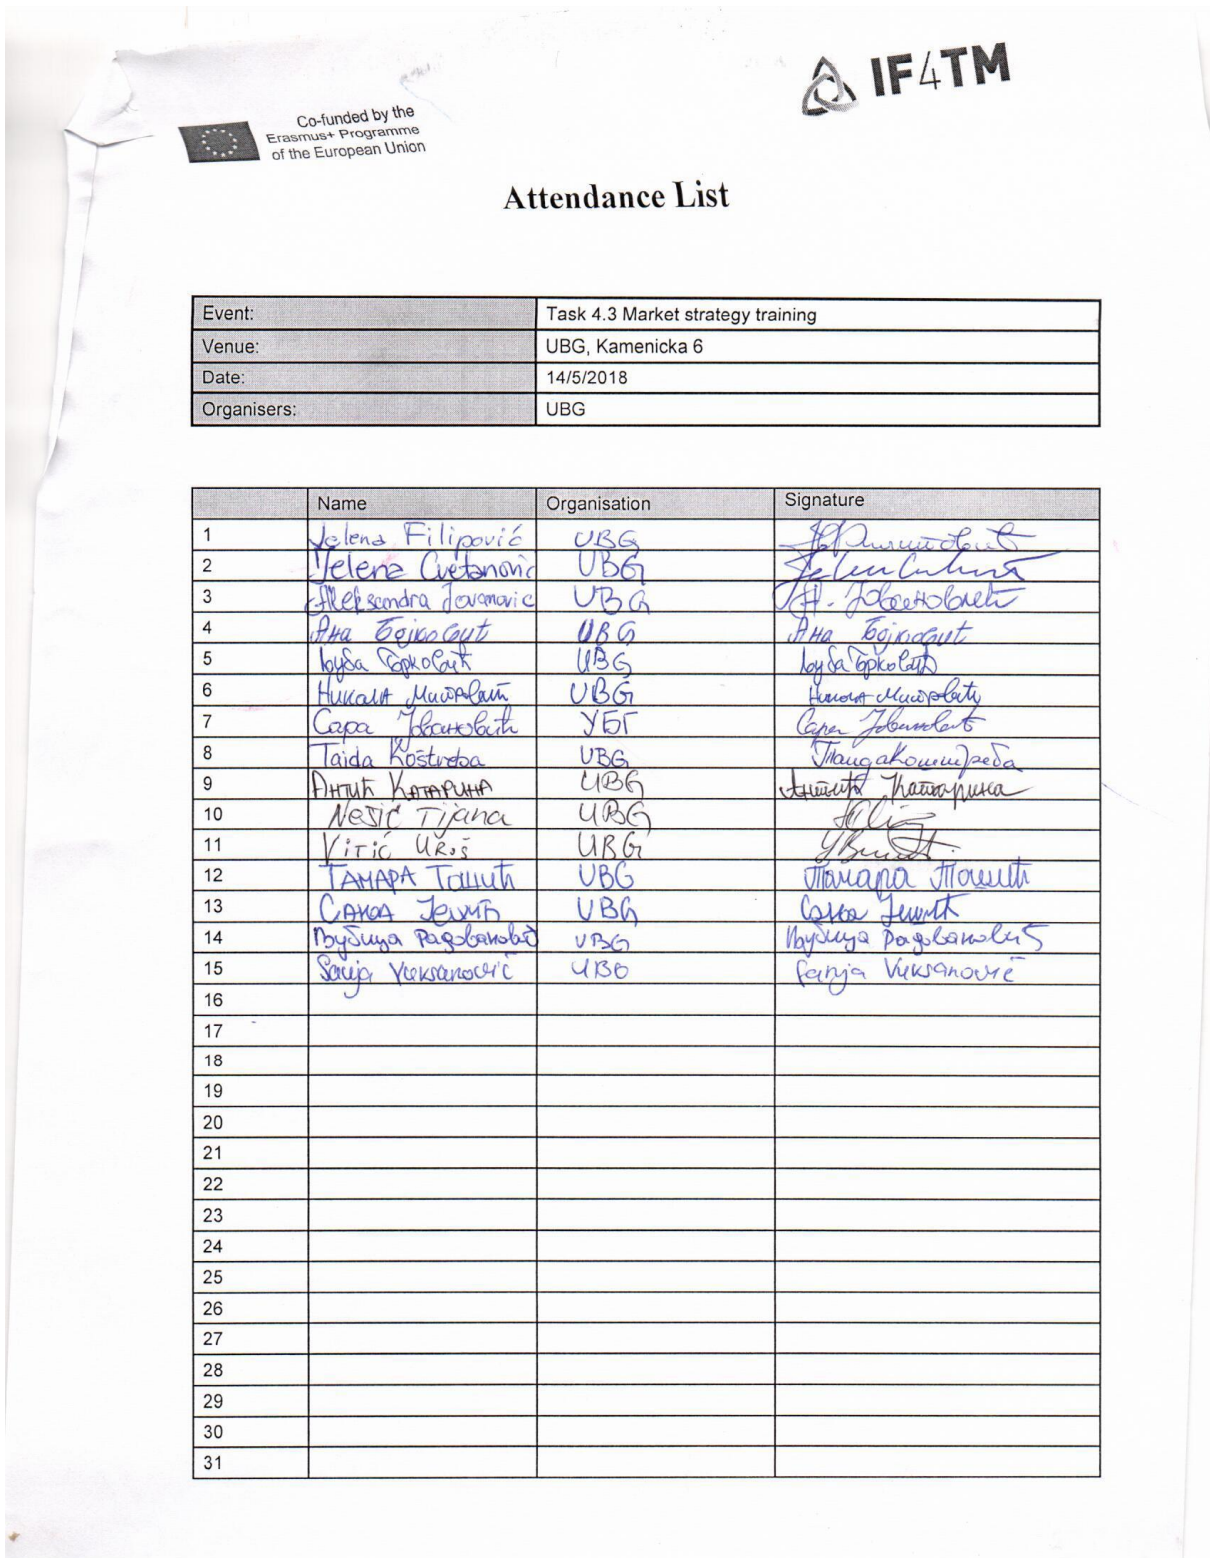 IF4TM
Co-funded by the
Erasmus+ Programme
of the European Union
Attendance List
Event: Task 4.3 Market strategy training
Venue: UBG, Kamenicka 6
Date: 14/5/2018
Organisers: UBG
Name Organisation Signature
1 Jelena Filipović UBG
2 Jelena Cvetanović UBG
3 Aleksandra Jovanovic UBG А. Јовановић
4 Ана Бојковић UBG Ана Бојковић
5 Љуба Ђорковић UBG Љуба Ђорковић
6 Никола Митровић UBG Никола Митровић
7 Сара Јовановић УБГ Сара Јовановић
8 Taida Koštreba UBG Таида Коштреба
9 Антић Катарина UBG Антић Катарина
10 Nešić Tijana UBG
11 Vitić Uroš UBG
12 ТАМАРА Тошић UBG Тамара Тошић
13 Сања Јешић UBG Сања Јешић
14 Љубица Радовановић UBG Љубица Радовановић
15 Sanja Vuksanović UBG Sanja Vuksanović
16
17
18
19
20
21
22
23
24
25
26
27
28
29
30
31